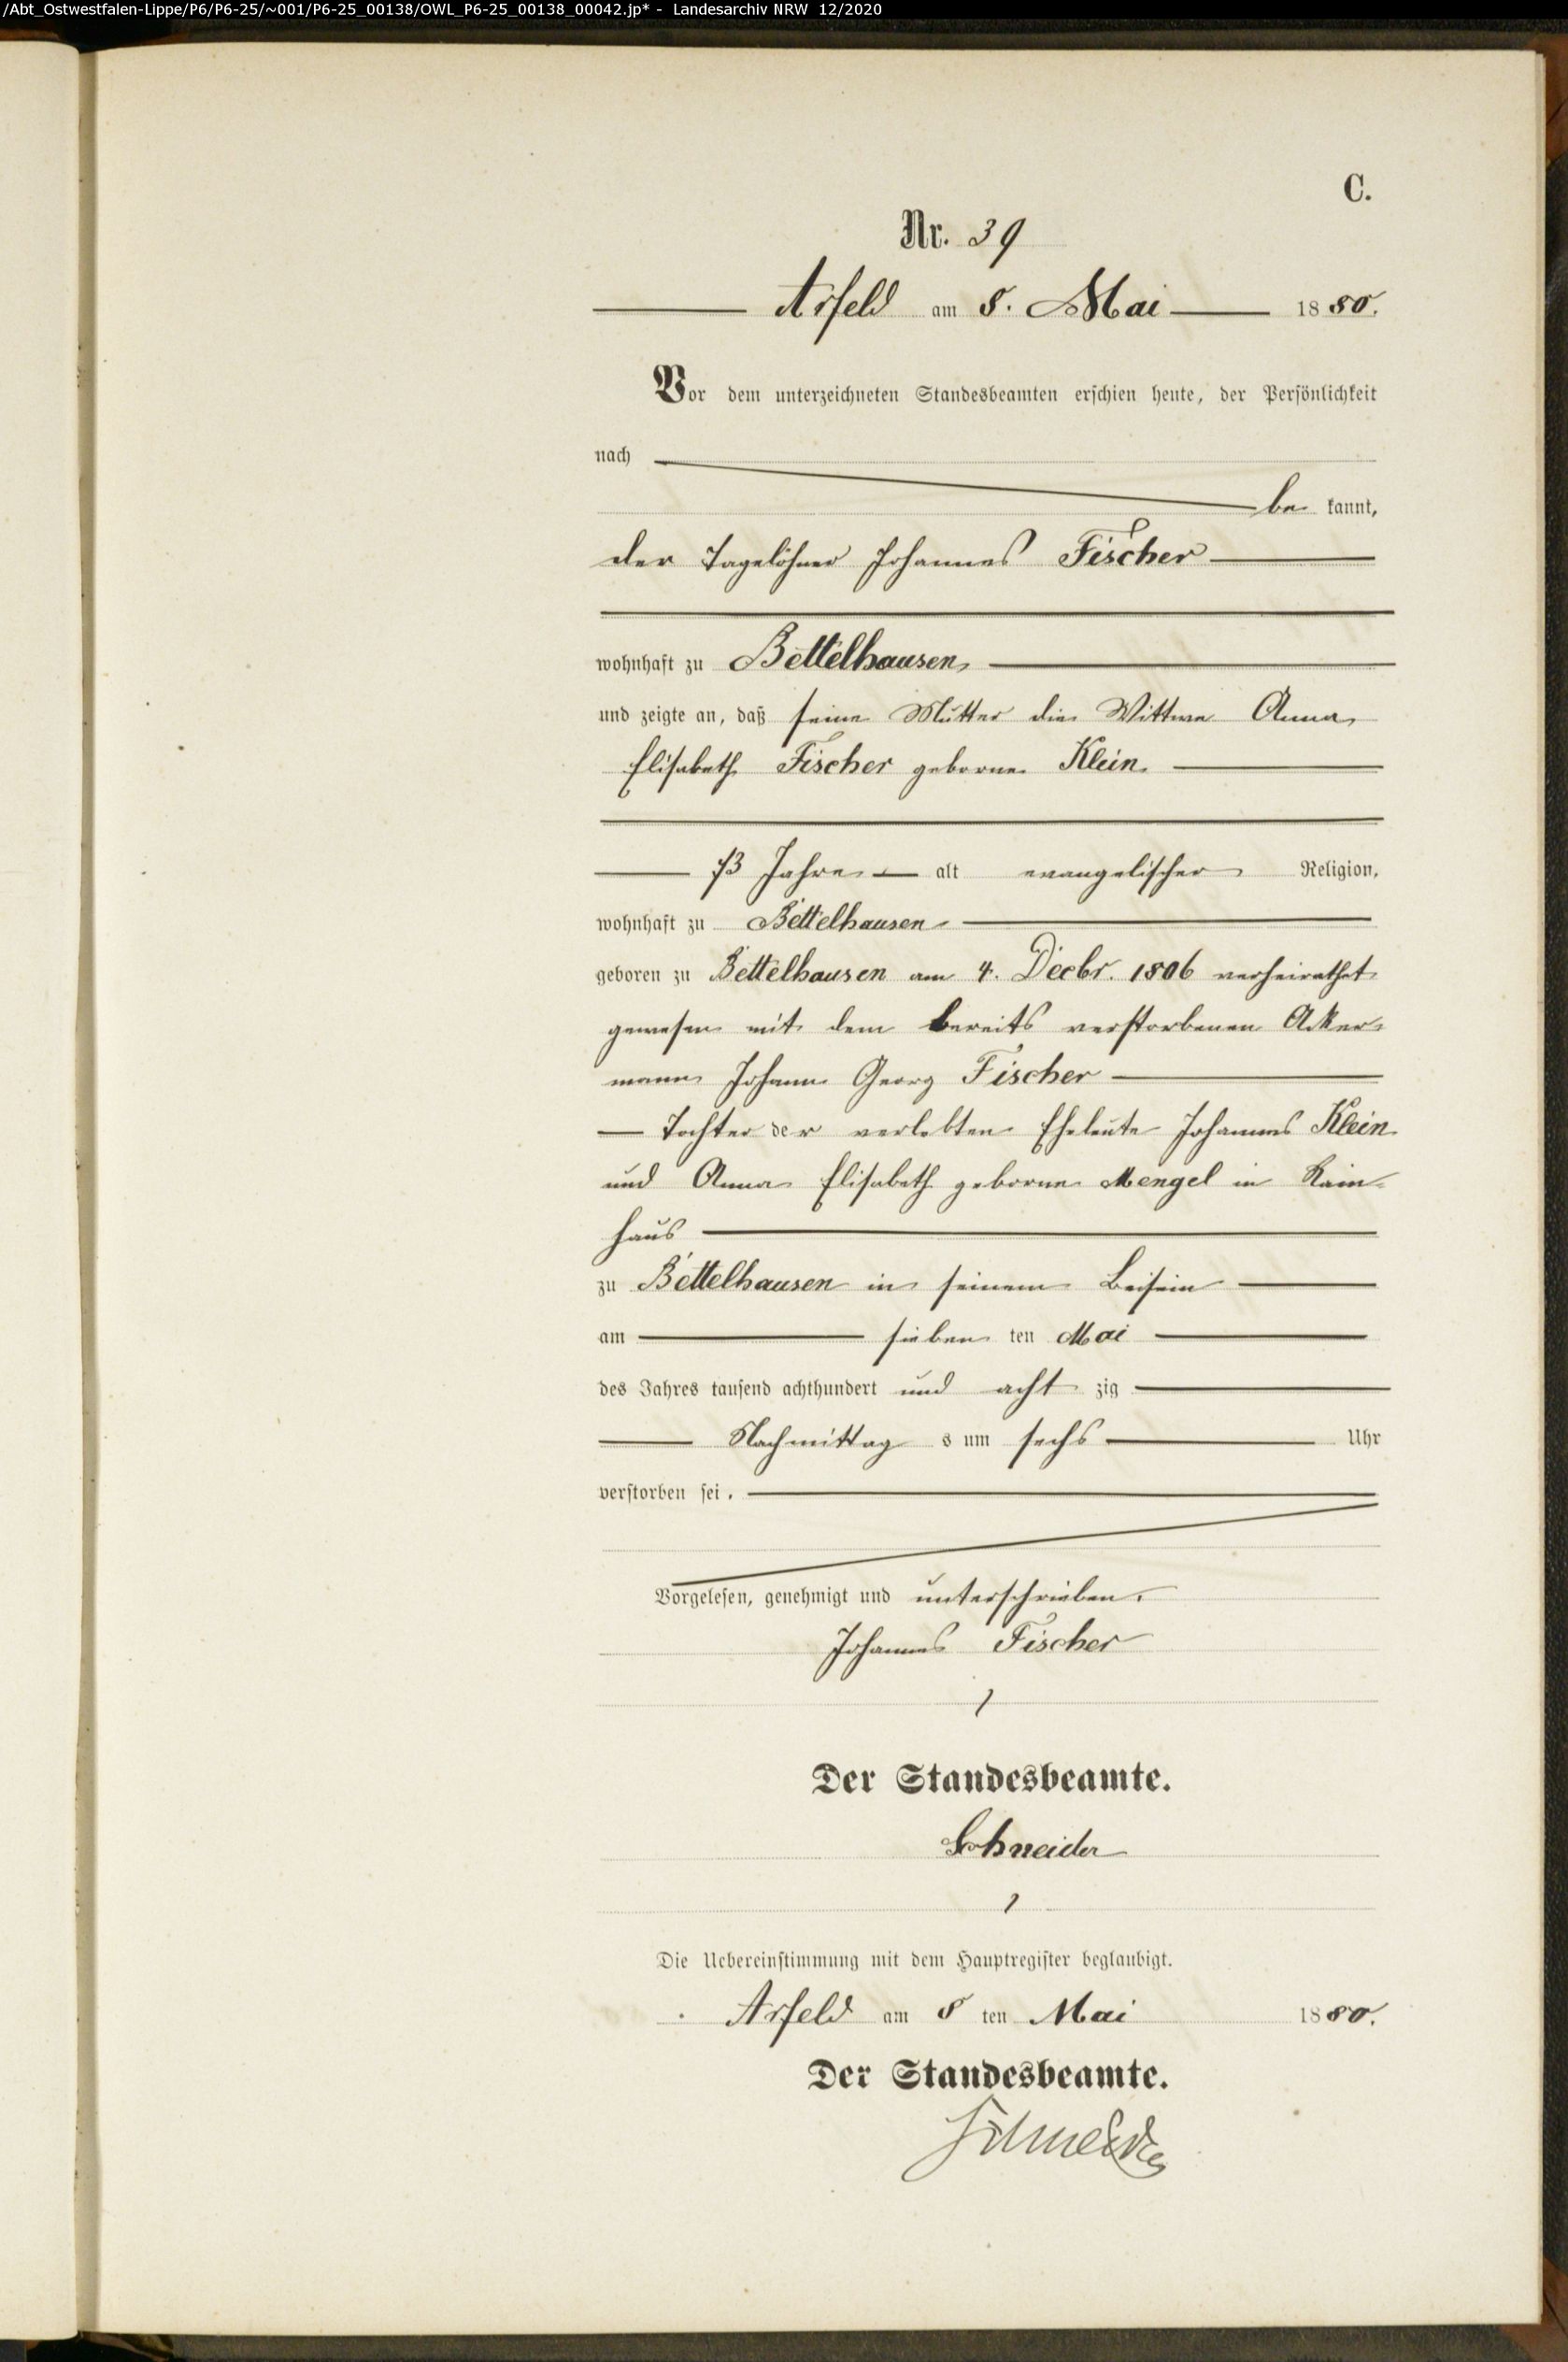 /Abt_Ostwestfalen-Lippe/P6/P6-25/~001/P6-25_00138/OWL_P6-25_00138_00042.jp* - Landesarchiv NRW 12/2020
C.
Nr. 39
Arfeld am 8. Mai 1880.
Vor dem unterzeichneten Standesbeamten erschien heute, der Persönlichkeit
nach
be kannt,
der Tagelöhner Johannes Fischer
wohnhaft zu Bettelhausen,
und zeigte an, daß seine Mutter die Wittwe Anna
Elisabeth Fischer geborne Klein
73 Jahre alt evangelischer Religion,
wohnhaft zu Bettelhausen
geboren zu Bettelhausen am 4. Decbr. 1806 verheirathet
gewesen mit dem bereits verstorbenen Acker-
mann Johann Georg Fischer
Tochter der verlebten Eheleute Johannes Klein
und Anna Elisabeth geborne Mengel in
haus
zu Bettelhausen in seinem Beisein
am sieben ten Mai
des Jahres tausend achthundert und acht zig
Nachmittag s um sechs Uhr
verstorben sei.
Vorgelesen, genehmigt und unterschrieben.
Johannes Fischer
Der Standesbeamte.
Schneider
Die Uebereinstimmung mit dem Hauptregister beglaubigt.
Arfeld am 8 ten Mai 1880.
Der Standesbeamte.
Schneider